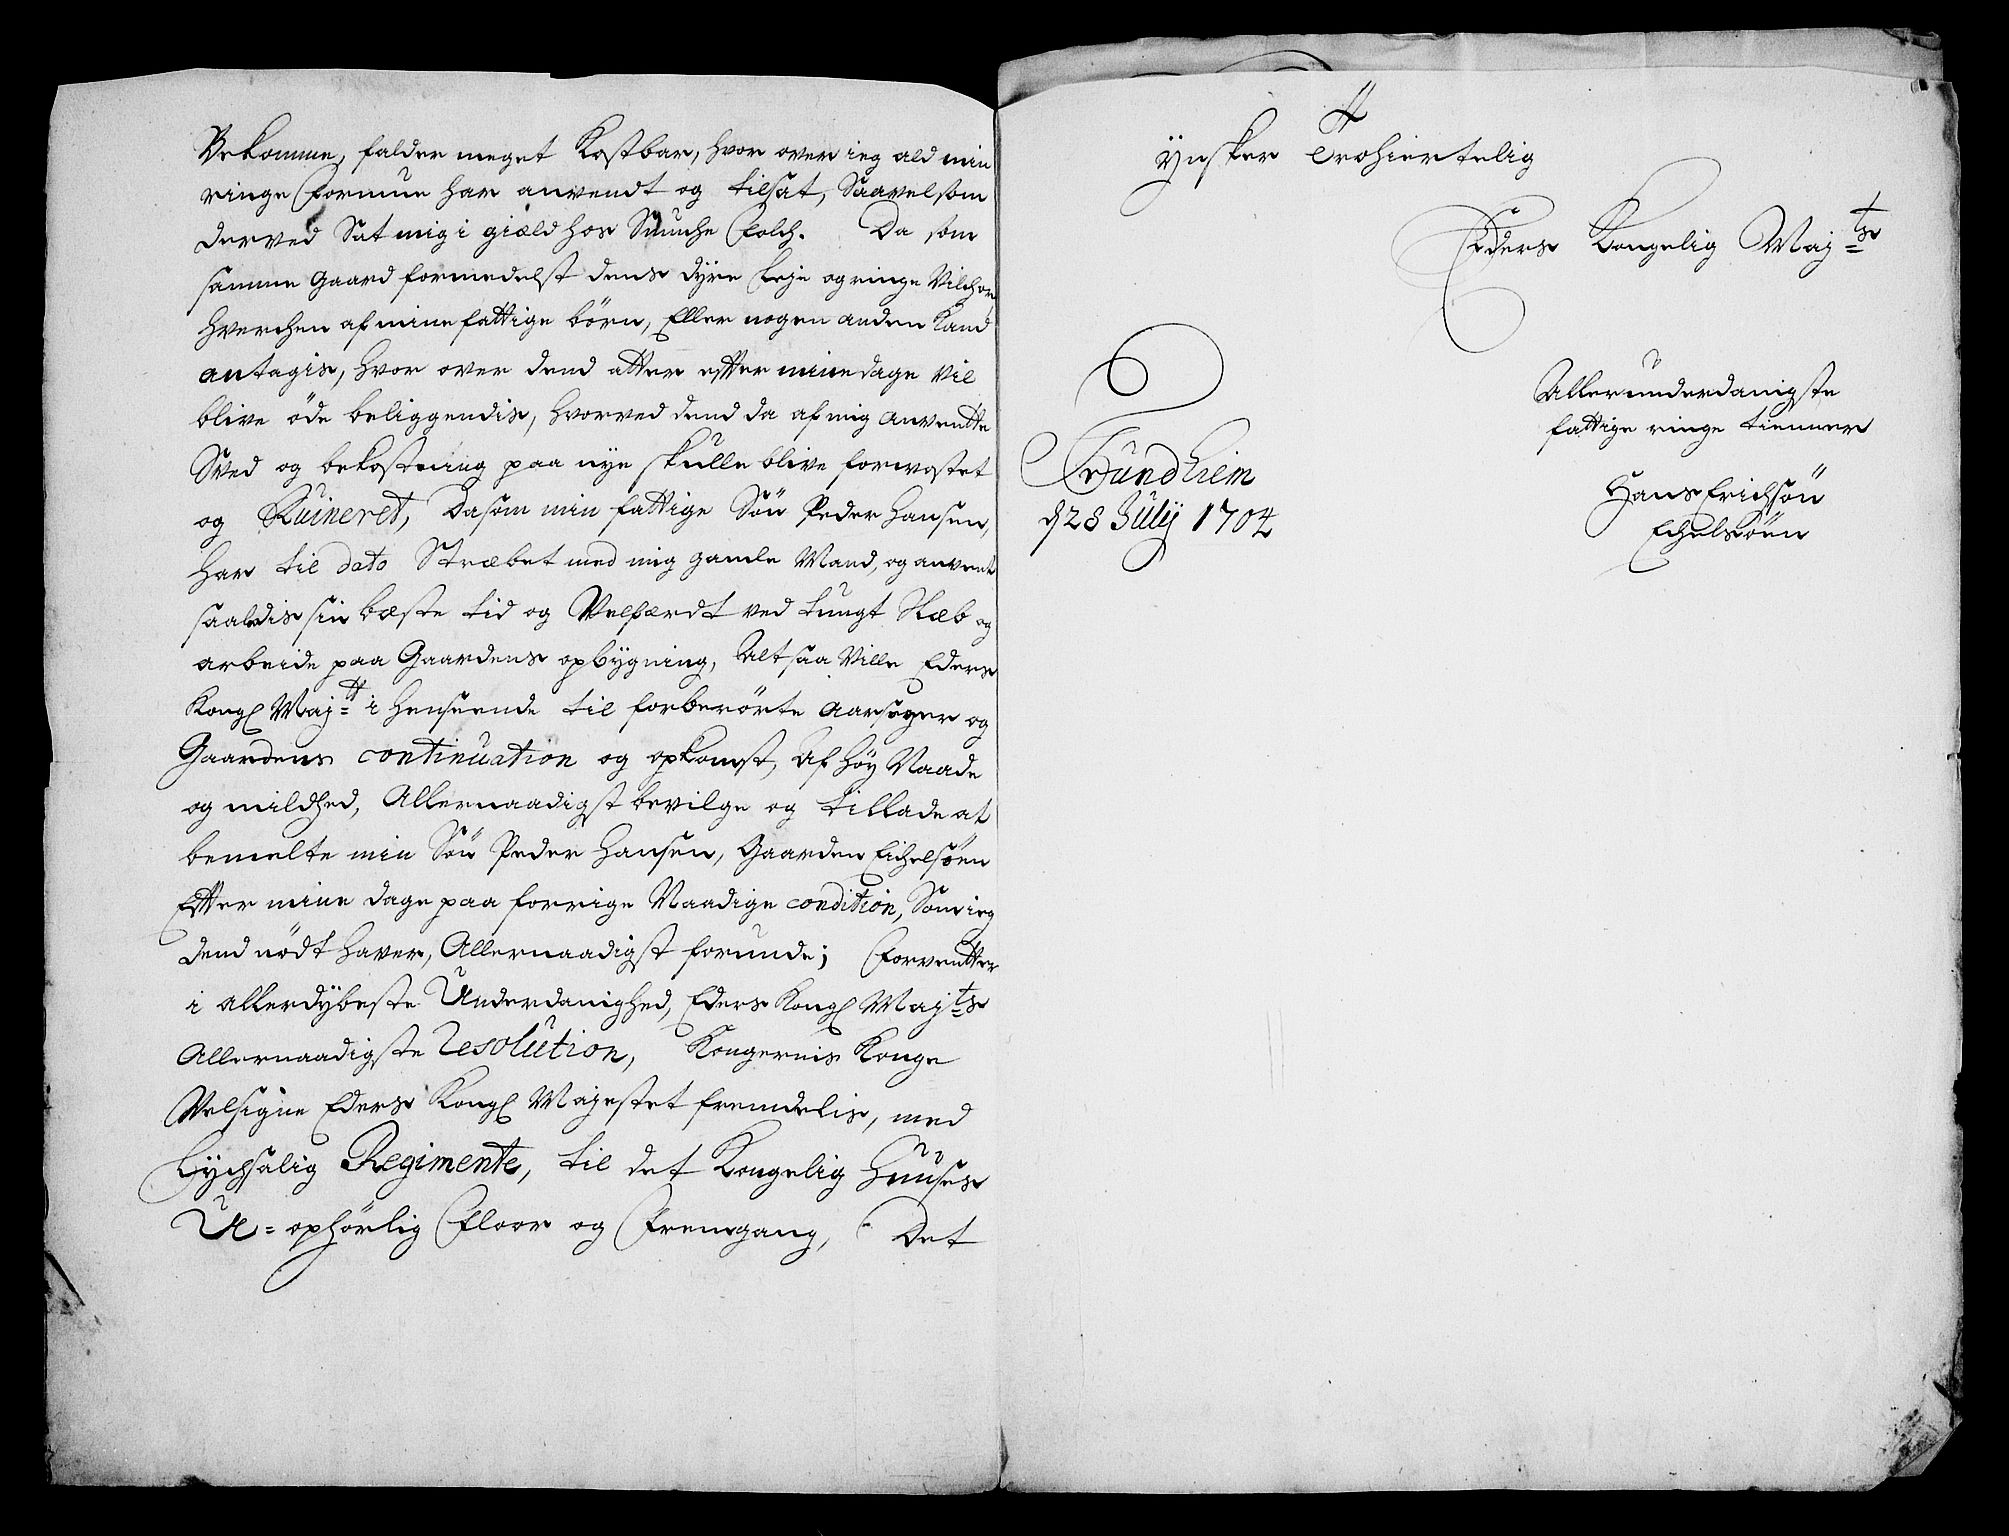 Bekomme, falder meget Kostbar, hvor over ieg ald min
ringe Formue har anvendt og tilsat, Saavelsom
derved Sat mig i giæld hos Smuche Folch. Da som
samme Gaard formedelst dens dÿre Leje og ringe Vilchor
hverchen af mine fattige börn, Eller nogen anden Kand
antagis, hvor over dend atter efter mine dage vil
blive öde beliggendis, hvorved dend da af mig anvendte
Sved og bekostning paa nye skulle blive forwostet
og Ruineret, Da som min fattige Sön Peder Hansen,
har til dato Stræbet med mig gamle Mand, og anvendt
saaledis sin bæste tid og Velfærdt ved tungt Slæb og
arbeide paa Gaardens opbÿgning, Alt saa Ville Eders
Kongl Majtt i henseende til forberörte Aarsager og
Gaardens continuation og opkomst, af höÿ Naade
og mildhed, Allernaadigst bevilge og tillade at
bemelte min Sön Peder Hansen, Gaarden Eichelsöen
Efter mine dage paa forrige Naadige condition, Som ieg
dend nödt haver, Allernaadigst forunde; Forventter
i allerdÿbeste Underdanighed, Eders Kongl Majts
Allernaadigste Resolution, Kongernis Konge
Velsigne Eders Kongl Majestet fremdelis, med
Lÿchsalig Regimente, til det Kongelig Huuses
U=ophörlig Floor og Fremgang, Det
ÿnsker Trohiertelig
Eders Kongelig Majts
Allerunderdanigste
fattige ringe tienner
Hans Erichsön
Echelsöen
Trundhiem
d 28 Julij 1704